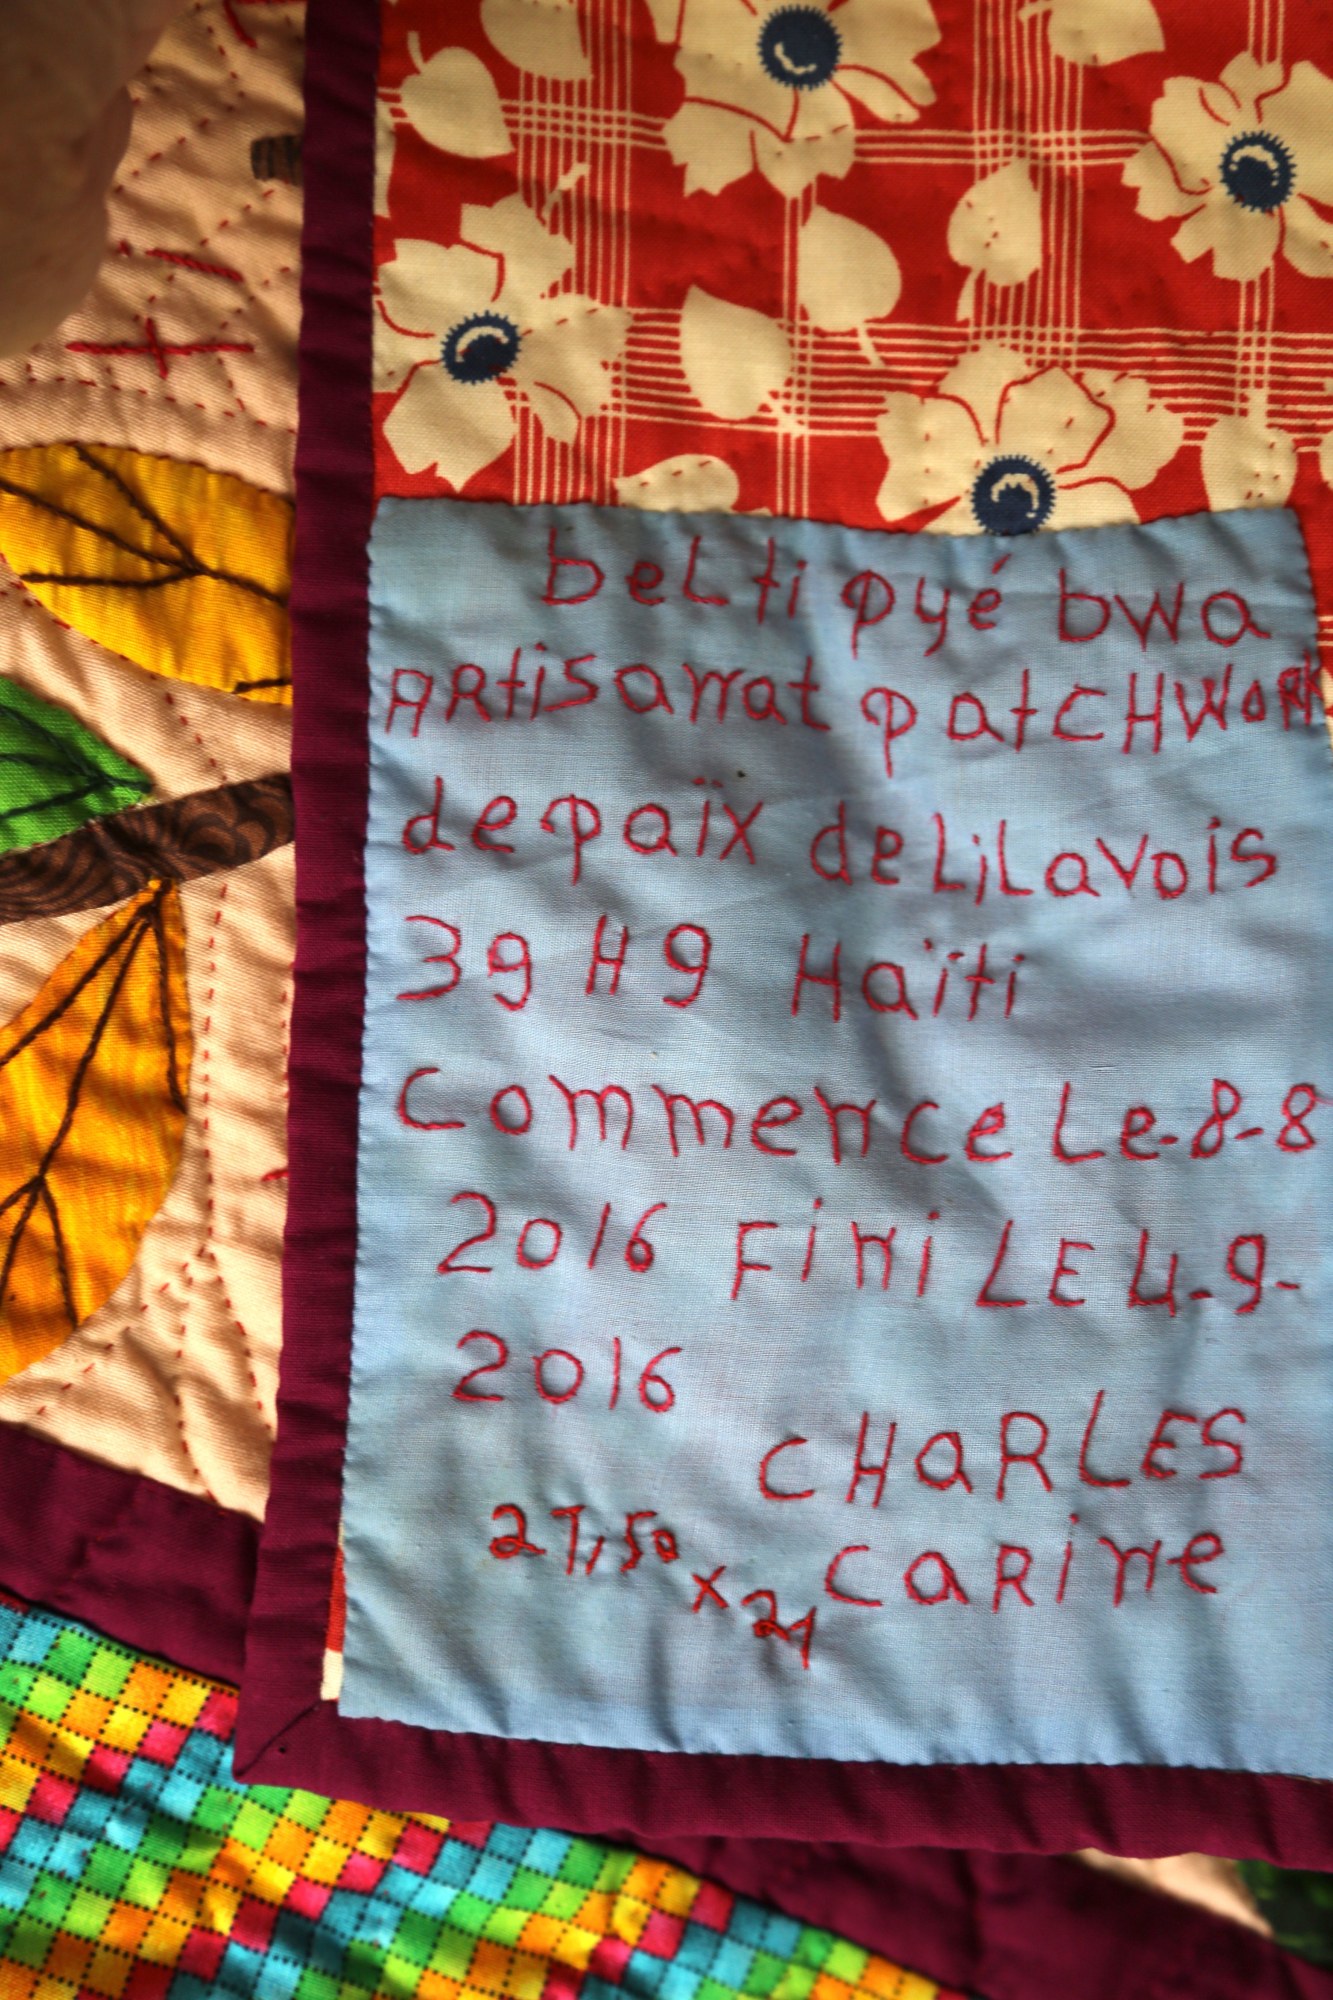 beL ti pyé bwa
ARtisanat patCHWORK
depaïx deLiLavois
39 H 9 Haïti
Commence Le-8-8
2016 Fini LE 4-9-
2016
CHaRLES
27,50 x 21
CaRine